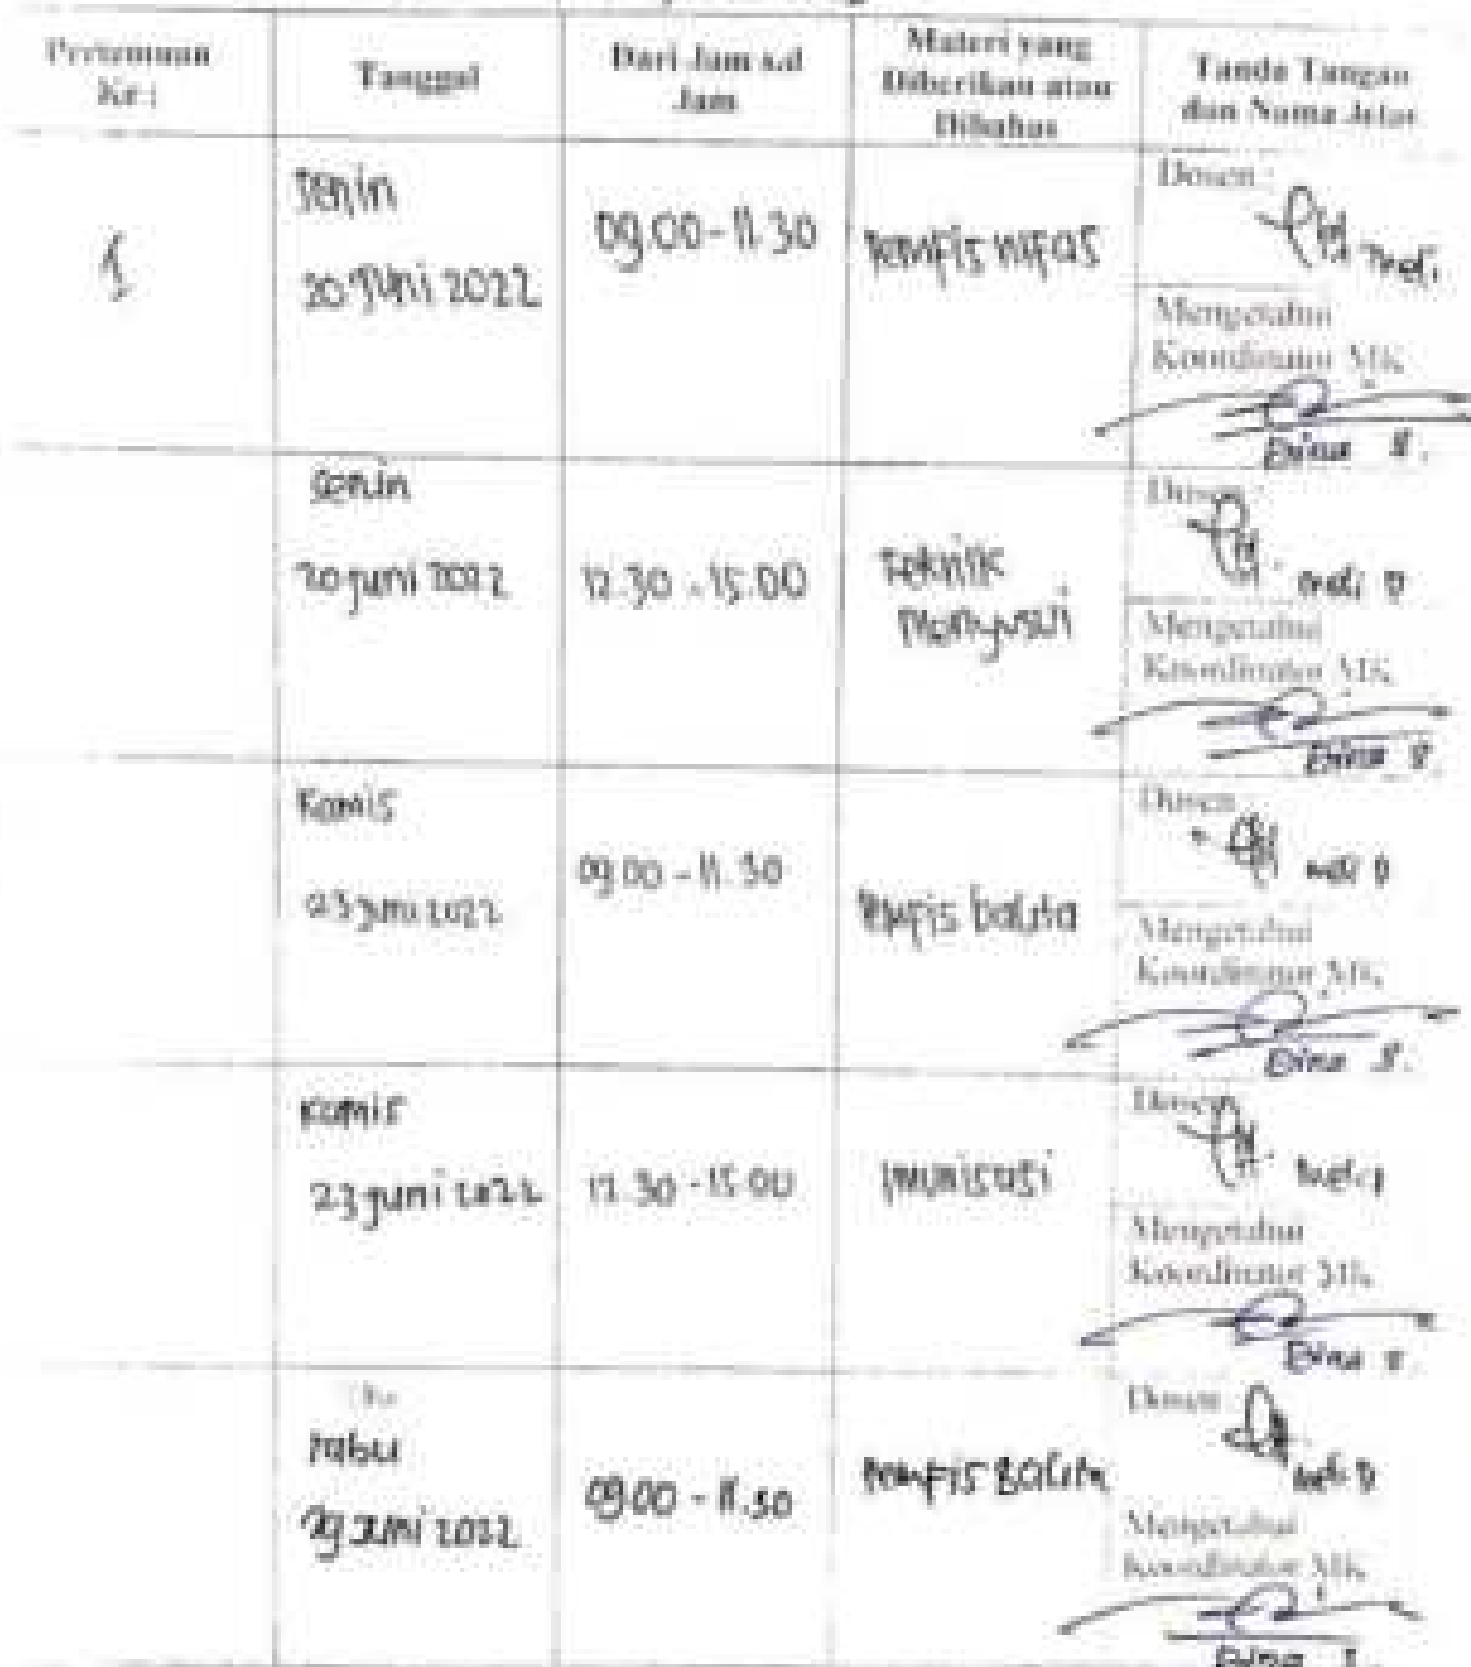 Pertemuan
Ke :
Tanggal
Dari Jam s.d
Jam
Materi yang
Diberikan atau
Dibahas
Tanda Tangan
dan Nama Jelas
1
Senin
20 Juni 2022
09.00 - 11.30
Pemfis nifas
Dosen :
Meli.
Mengetahui
Koordinator MK
Erina S.
Senin
20 juni 2022
12.30 - 15.00
Teknik
Menyusui
Dosen :
meli D
Mengetahui
Koordinator MK
Erina S.
Kamis
23 juni 2022
09.00 - 11.30
Pemfis balita
Dosen :
meli D
Mengetahui
Koordinator MK
Erina S.
Kamis
23 juni 2022
12.30 - 15.00
Imunisasi
Dosen
Mengetahui
Koordinator MK
Erina S.
rabu
29 Juni 2022
09.00 - 11.30
Pemfis Balita
Dosen
meli D
Mengetahui
Koordinator MK
Erina S.